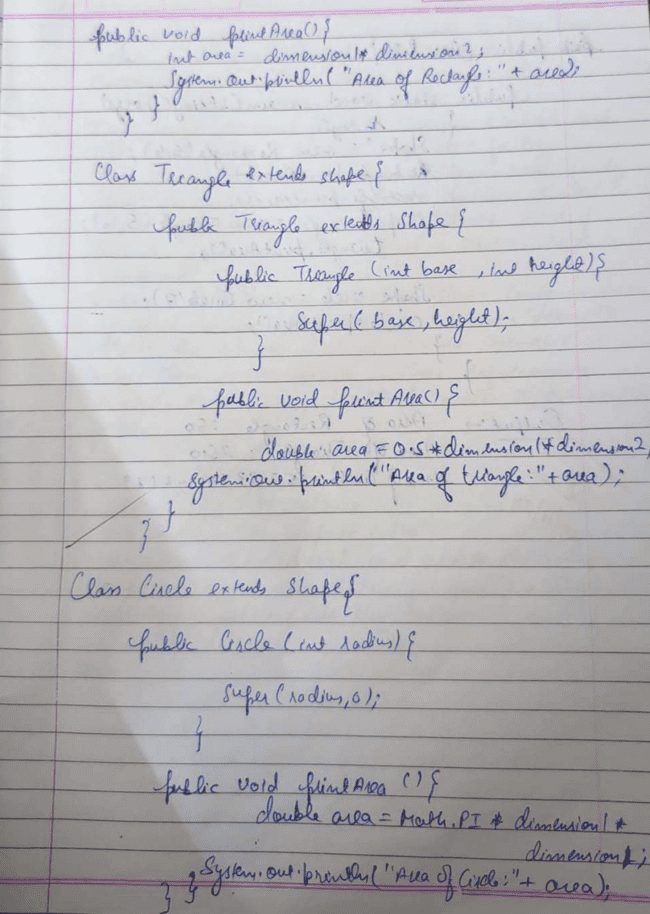 public void printArea() {
int area = dimension1* dimension2;
System.out.println("Area of Rectangle:" + area);
}
}
Class Triangle extends shape {
public Triangle extends Shape {
public Triangle (int base, int height) {
Super( base, height);
}
public void printArea() {
double area = 0.5 *dimension1*dimension2,
System.out.println("Area of triangle:"+area);
}
}
Class Circle extends Shape{
public Circle (int radius) {
Super (radius,0);
}
public void printArea () {
double area = Math.PI * dimension1 *
dimension1;
} } System.out.println("Area of Circle:"+ area);